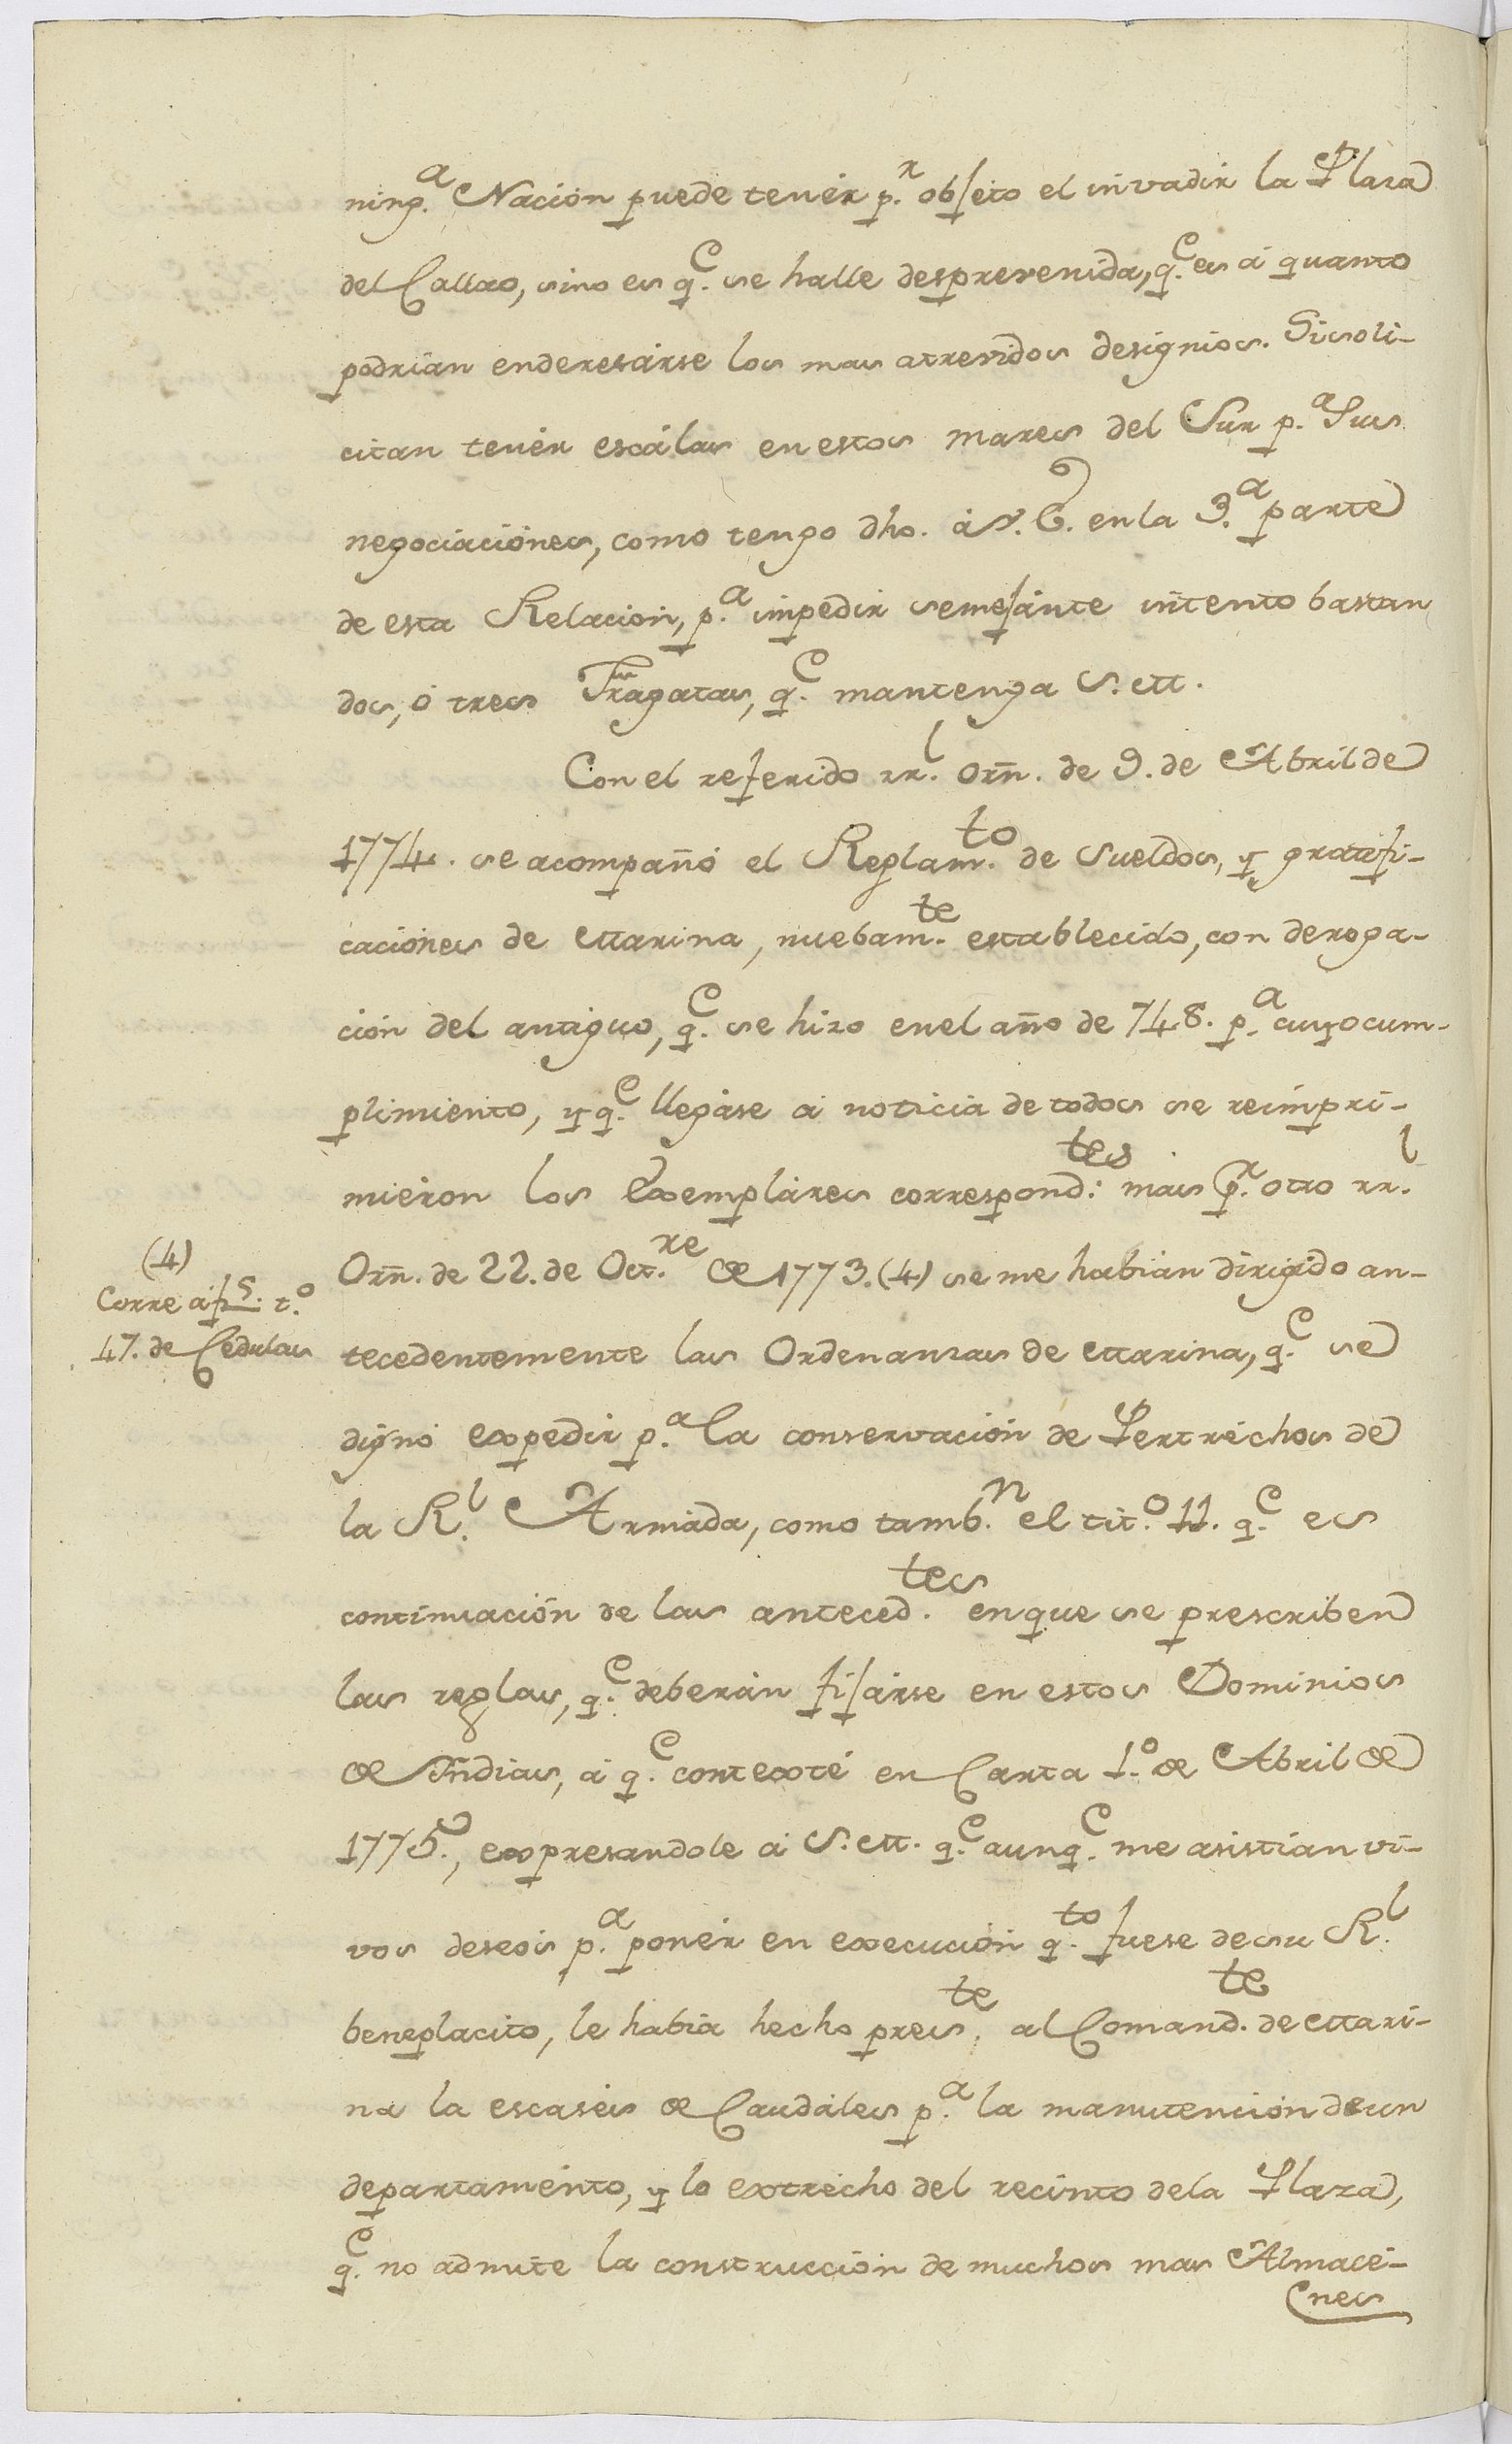 ning.ᵃ Nacion puede tenér p.ʳ objeto el invadir la Plaza
del Callao, sino es q.ᵉ se halle desprevenida, q.ᵉ es á quanto
podrian enderesárse los mas atrevidos designios. Si soli-
citan tenér escálas en estos mares del Sur p.ᵃ sus
negociaciónes, como tengo dho. à V. E. en la 3.ᵃ parte
de esta Relacion, p.ᵃ impedir semejánte intento bastan
dos, ó tres Fragatas, q.ᵉ mantenga S. M.
Con el referido rr.ˡ Orñ. de 9. de Abril de
1774. se acompañó el Reglam.ᵗᵒ de Sueldos, y gratifi-
caciónes de Marina, nuebam.ᵗᵉ establecido, con deroga-
ción del antiguo, q.ᵉ se hizo en el año de 748. p.ᵃ cuyo cum-
plimiento, y q.ᵉ llegáse á noticia de todos se reimpri-
mieron los Exempláres correspond.ᵗᵉˢ mas p.ʳ otro rr.ˡ
Orñ. de 22. de Oct.ʳᵉ de 1773. (4) se me habian dirigido an-
(4)
Corre á fs. 5. t.º
47. de Cedulas
tecedentemente las Ordenanzas de Marina, q.ᵉ se
dignó expedir p.ᵃ la conservación de Pertréchos de
la R.ˡ Armada, como tamb.ⁿ el tit.º 11. q.ᵉ es
continuación de las anteced.ᵗᵉˢ en que se prescriben
las reglas, q.ᵉ deberán fijárse en estos Dominios
de Indias, á q.ᵉ contexté en Carta 1.º de Abril de
1775., expresandole á S. M. q.ᵉ aunq.ᵉ me asistian vi-
vos deseós p.ᵃ ponér en execución q.ᵗᵒ fuese de su R.ˡ
beneplacito, le habia hecho pres.ᵗᵉ al Comand.ᵗᵉ de Mari-
na la escasés de Caudáles p.ᵃ la manutención de un
departaménto, y lo extrécho del recinto de la Plaza,
q.ᵉ no admite la construcción de muchos mas Almacé-
nes